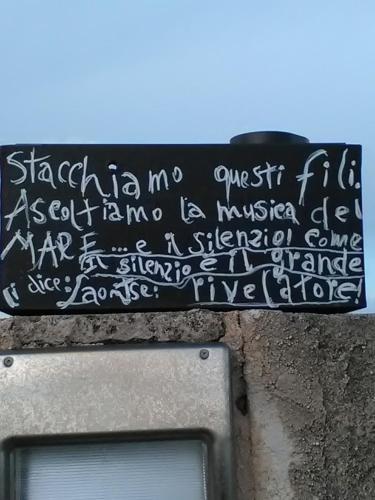 Stacchiamo questi fili.
Ascoltiamo la musica del
MARE... e il silenzio! come
Il silenzio è il grande
dice: Laontse: rivelatore!